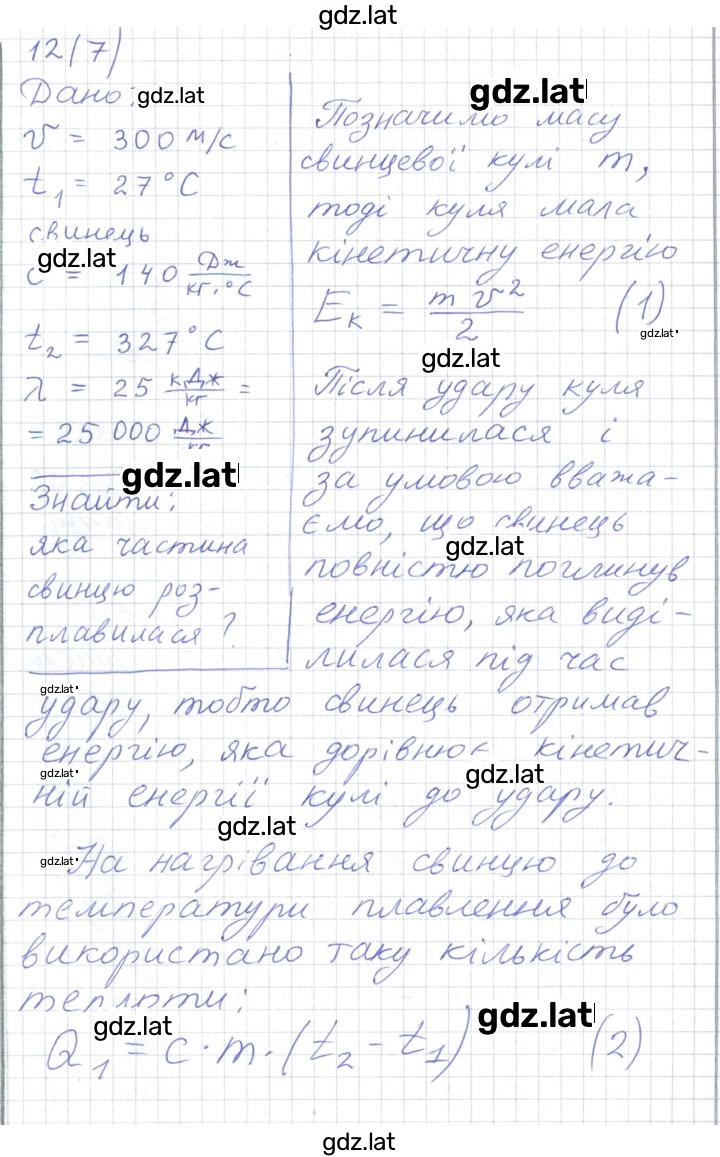 gdz.lat
12(7)
Дано: gdz.lat
v = 300 м/с
t₁ = 27°C
свинець
gdz.lat
c = 140 Дж/кг·°C
t₂ = 327°C
λ = 25 кДж/кг =
= 25 000 Дж/кг
gdz.lat
Знайти:
яка частина
свинцю роз-
плавилася?
gdz.lat
Позначимо масу
свинцевої кулі m,
тоді куля мала
кінетичну енергію
Eк = mv²/2 (1)
gdz.lat
gdz.lat
Після удару куля
зупинилася і
за умовою вважа-
ємо, що свинець
gdz.lat
повністю поглинув
енергію, яка виді-
лилася під час
gdz.lat
удару, тобто свинець отримав
енергію, яка дорівнює кінетич-
gdz.lat
gdz.lat
ній енергії кулі до удару.
gdz.lat
gdz.lat
На нагрівання свинцю до
температури плавлення було
використано таку кількість
теплоти:
gdz.lat
gdz.lat
Q₁ = c·m·(t₂ - t₁) (2)
gdz.lat